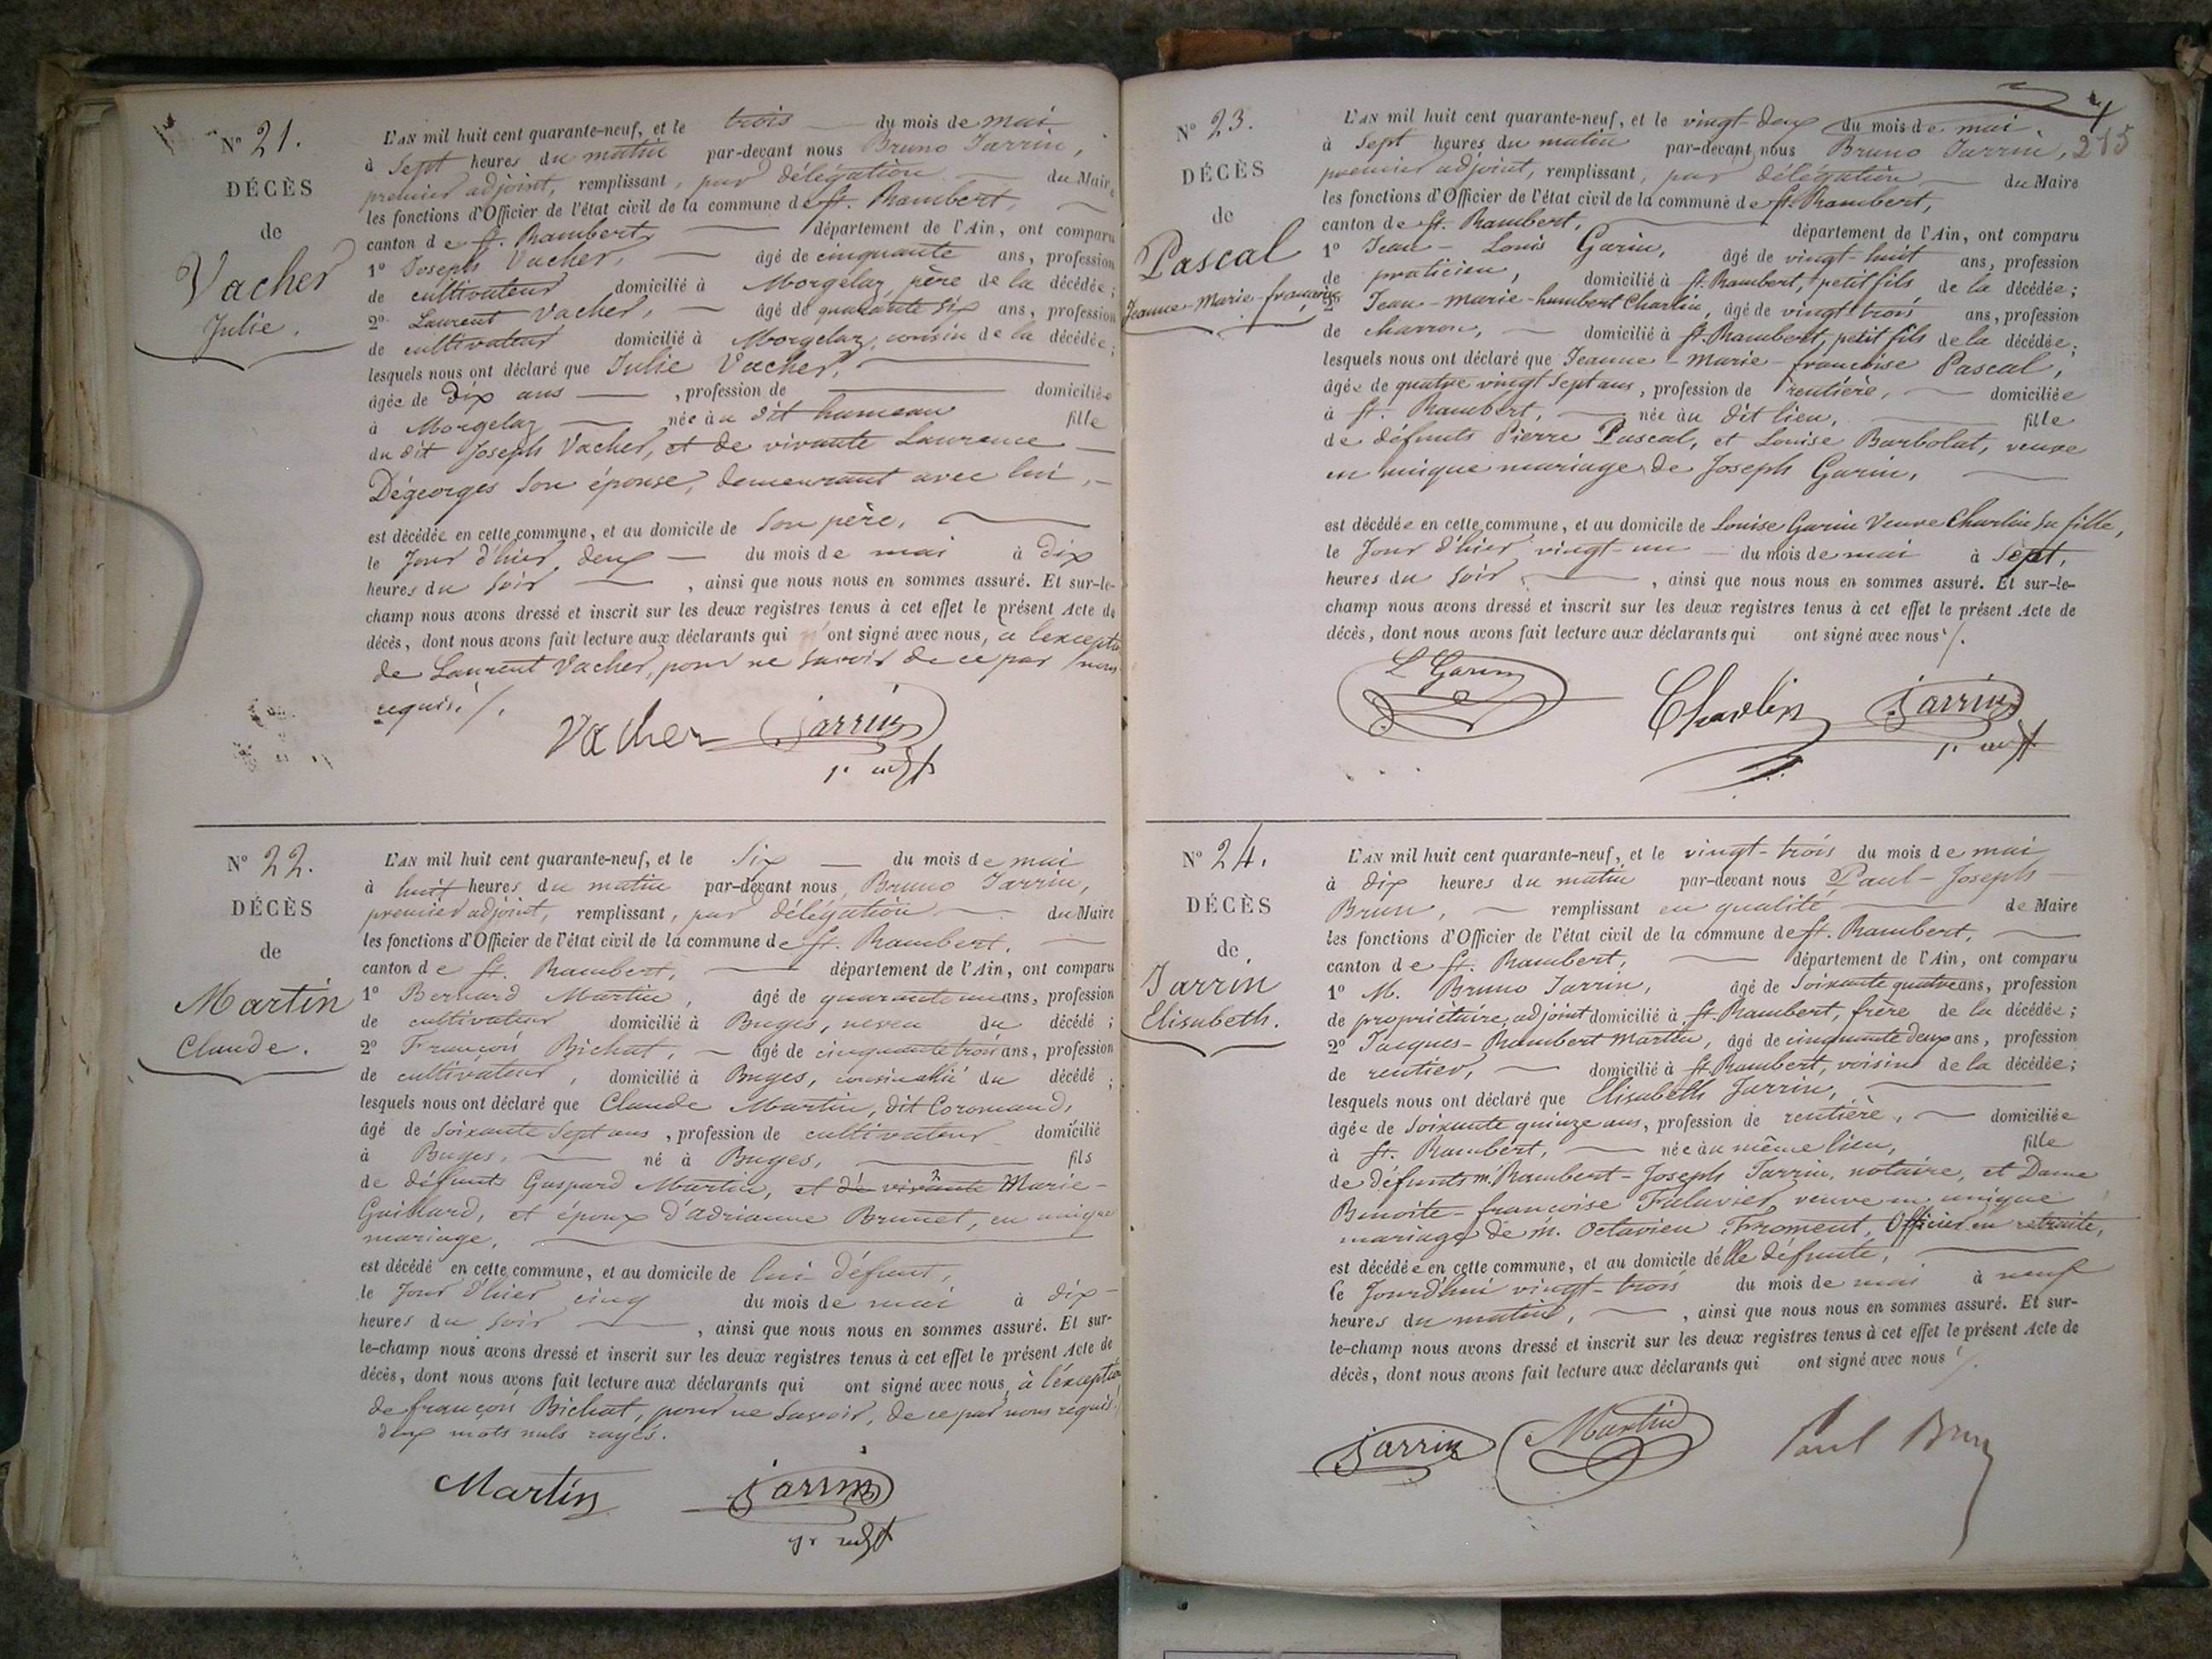 N° 21.
DÉCÈS
de
Vacher
Julie.
L'AN mil huit cent quarante-neuf, et le trois du mois de mai
à Sept heures du matin par-devant nous Bruno Jarrin,
premier adjoint, remplissant, par délégation du Maire
les fonctions d'Officier de l'état civil de la commune de St. Rambert,
canton de St. Rambert, département de l'Ain, ont comparu
1° Joseph Vacher, âgé de cinquante ans, profession
de cultivateur domicilié à Morgelaz, père de la décédée;
2° Laurent Vacher, âgé de quarante six ans, profession
de cultivateur domicilié à Morgelaz, cousin de la décédée;
lesquels nous ont déclaré que Julie Vacher,
âgée de Dix ans, profession de domiciliée
à Morgelaz née au dit hameau fille
du dit Joseph Vacher, et de vivante Laurence
Dégeorges son épouse, demeurant avec lui,
est décédée en cette commune, et au domicile de Son père,
le Jour d'hier, deux du mois de mai à Dix
heures du Soir, ainsi que nous nous en sommes assuré. Et sur-le-
champ nous avons dressé et inscrit sur les deux registres tenus à cet effet le présent Acte de
décès, dont nous avons fait lecture aux déclarants qui ont signé avec nous, à l'exception
de Laurent Vacher, pour ne savoir de ce par nous
requis./.
Vacher Jarrin
1er adjt
N° 22.
DÉCÈS
de
Martin
Claude.
L'AN mil huit cent quarante-neuf, et le Six du mois de mai
à huit heures du matin par-devant nous Bruno Jarrin,
premier adjoint, remplissant, par délégation du Maire
les fonctions d'Officier de l'état civil de la commune de St. Rambert,
canton de St. Rambert, département de l'Ain, ont comparu
1° Bernard Martin, âgé de quarante un ans, profession
de cultivateur domicilié à Buges, neveu du décédé;
2° François Bichat, âgé de cinquante trois ans, profession
de cultivateur, domicilié à Buges, cousin allié du décédé;
lesquels nous ont déclaré que Claude Martin, dit Coromand,
âgé de soixante Sept ans, profession de cultivateur domicilié
à Buges, né à Buges, fils
de défunts Gaspard Martin, et de vivante Marie-
Guillard, et époux d'adrianne Brunet, en unique
mariage,
est décédé en cette commune, et au domicile de lui défunt,
le Jour d'hier cinq du mois de mai à dix
heures du soir, ainsi que nous nous en sommes assuré. Et sur-
le-champ nous avons dressé et inscrit sur les deux registres tenus à cet effet le présent Acte de
décès, dont nous avons fait lecture aux déclarants qui ont signé avec nous, à l'exception
de françois Bichat, pour ne Savoir, de ce par nous requis./
deux mots nuls rayés.
Martin Jarrin
1er adjt
215
N° 23.
DÉCÈS
de
Pascal
Jeanne-Marie-françoise
L'AN mil huit cent quarante-neuf, et le vingt-deux du mois de mai
à Sept heures du matin par-devant nous Bruno Jarrin,
premier adjoint, remplissant, par délégation du Maire
les fonctions d'Officier de l'état civil de la commune de St. Rambert,
canton de St. Rambert, département de l'Ain, ont comparu
1° Jean-Louis Garin, âgé de vingt-huit ans, profession
de praticien, domicilié à St. Rambert, petit fils de la décédée;
2° Jean-marie-humbert Charlin, âgé de vingt trois ans, profession
de charron, domicilié à St. Rambert, petit fils de la décédée;
lesquels nous ont déclaré que Jeanne-Marie-françoise Pascal,
âgée de quatre vingt Sept ans, profession de rentière, domiciliée
à St. Rambert, née au dit lieu, fille
de défunts Pierre Pascal, et Louise Barbolat, veuve
en unique mariage de Joseph Garin,
est décédée en cette commune, et au domicile de Louise Garin Veuve Charlin sa fille,
le Jour d'hier vingt-un du mois de mai à Sept,
heures du Soir, ainsi que nous nous en sommes assuré. Et sur-le-
champ nous avons dressé et inscrit sur les deux registres tenus à cet effet le présent Acte de
décès, dont nous avons fait lecture aux déclarants qui ont signé avec nous./.
L Garin Charlin Jarrin
1er adjt
N° 24.
DÉCÈS
de
Jarrin
Elisabeth.
L'AN mil huit cent quarante-neuf, et le vingt-trois du mois de mai
à dix heures du matin par-devant nous Paul-Joseph
Brun, remplissant en qualité de Maire
les fonctions d'Officier de l'état civil de la commune de St. Rambert,
canton de St. Rambert, département de l'Ain, ont comparu
1° M. Bruno Jarrin, âgé de Soixante quatre ans, profession
de propriétaire, adjoint domicilié à St. Rambert, frère de la décédée;
2° Jacques-Rambert Martin, âgé de cinquante deux ans, profession
de rentier, domicilié à St. Rambert, voisin de la décédée;
lesquels nous ont déclaré que Elisabeth Jarrin,
âgée de Soixante quinze ans, profession de rentière, domiciliée
à St. Rambert, née au même lieu, fille
de défunts M. Rambert-Joseph Jarrin, notaire, et Dame
Benoite-francoise Falavier, veuve en unique
mariage de m. Octavien Froment, Officier en retraite,
est décédée en cette commune, et au domicile d'elle défunte,
le Jourd'hui vingt-trois du mois de mai à neuf
heures du matin, ainsi que nous nous en sommes assuré. Et sur-
le-champ nous avons dressé et inscrit sur les deux registres tenus à cet effet le présent Acte de
décès, dont nous avons fait lecture aux déclarants qui ont signé avec nous./.
Jarrin Martin Paul Brun